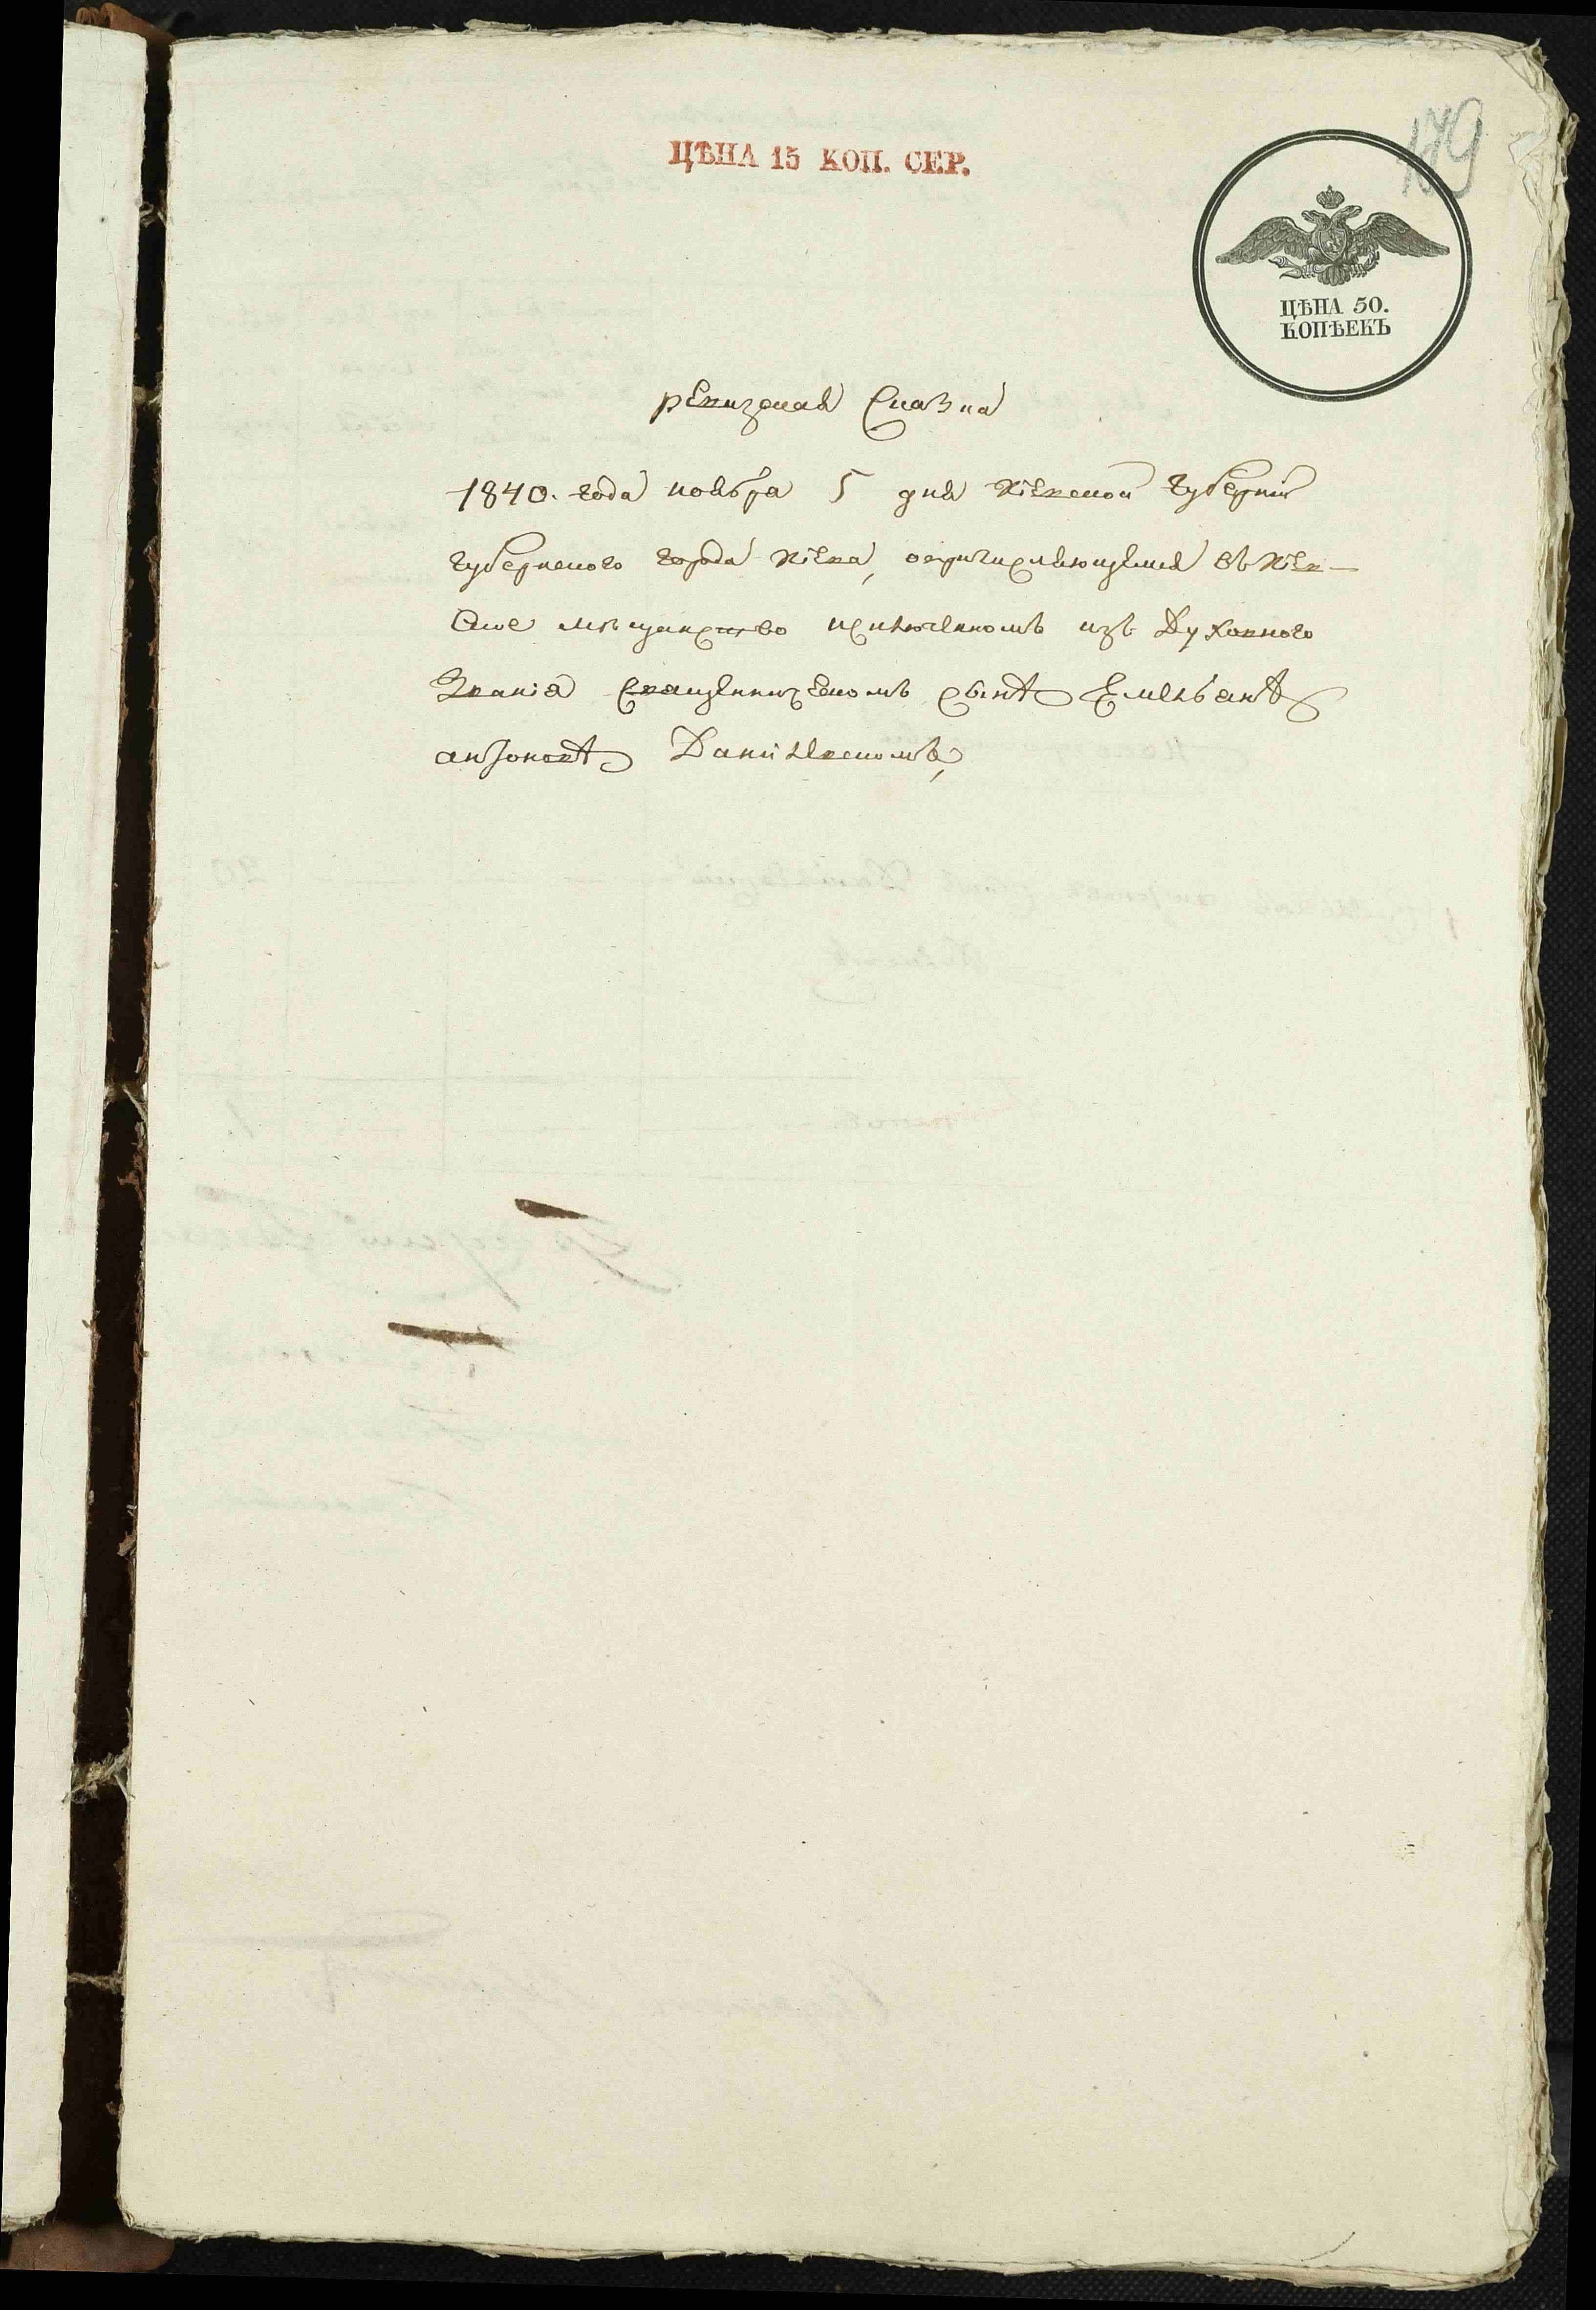 179
ЦѢНА 15 КОП. СЕР.
ЦѢНА 50.
КОПѢЕКЪ
ревизская Сказка
1840. года ноября 5 дня Кіевской губерніи
губернского города Кіева, о причисляющемся въ Кіев-
Ское мѣщанство исключенномъ изъ Духовного
Званія Священническомъ сынѣ Емельянѣ
антоновѣ Данилевскомъ,